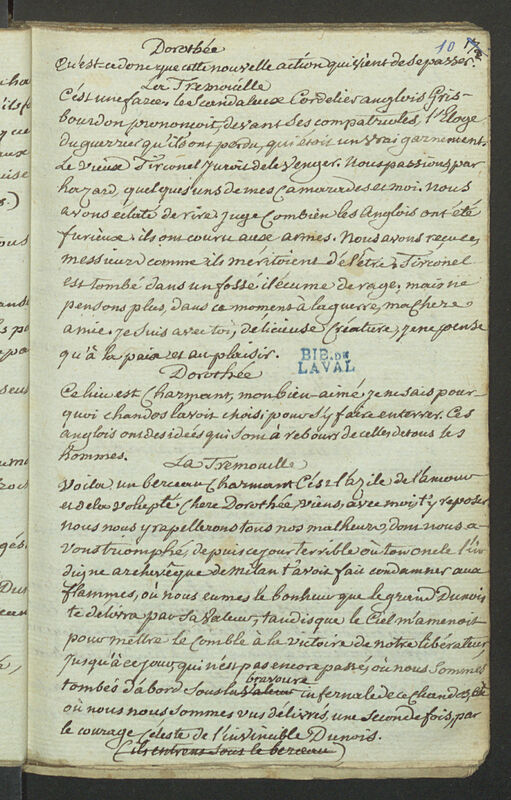 10
Dorothée
Qu'est-ce donc que cette nouvelle action qui vient de se passer.
La Tremouille
C'est une farce. le scandaleux Cordelier anglois Gris-
bourdon prononçoit, devant ses compatriotes, l'Eloge
du guerrier qu'ils ont perdu, qui étoit un vrai garnement.
Le vieux Tirconel juroit de le venger. Nous passions par
hazard, quelques uns de mes Camarades et moi. Nous
avons éclaté de rire, juge Combien les Anglois ont été
furieux. ils ont couru aux armes. Nous avons reçu ces
messieurs comme ils meritoient de l'être. Tirconel
est tombé dans un fossé il écume de rage. mais ne
pensons plus, dans ce moment à la guerre, ma chere
amie. je suis avec toi, delicieuse Créature, je ne pense
qu'à la paix et au plaisir.
BIB. DE
LAVAL
Dorothée
Ce lieu est Charmant, mon bien-aimé, je ne sais pour-
quoi chandos l'avoit choisi pour s'y faire enterrer. Ces
anglois ont des idées qui sont à rebours de celles de tous les
hommes.
La Tremouille
Voila un berceau Charmant C'est l'azile de l'amour
et de la volupté. Chere Dorothée, viens, avec moi, t'y reposer
nous nous y rapellerons tous nos malheurs, dont nous a-
vons triomphé, depuis ce jour terrible où ton oncle l'in-
digne archevêque de milan t'avoit fait condamner aux
flammes, où nous eumes le bonheur que le grand Dunois
te delivra par sa valeur, tandis que le Ciel m'amenoit
pour mettre le comble à la victoire de notre libérateur
jusqu'à ce jour qui n'est pas encore passé, où nous sommes
tombés d'abord sous la valeur bravoure infernale de ce Chandos, et
où nous nous sommes vus délivrés, une seconde fois, par
le courage Céleste de l'invincible Dunois.
(ils entrent sous le berceau)